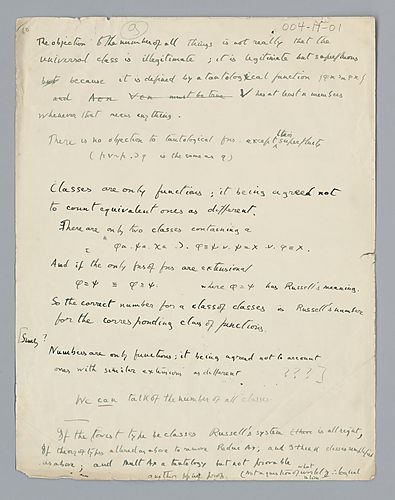 004-17-01
The objection to the number of all things is not really that the
universal class is illegitimate ; it is legitimate but superfluous
but because it is defined by a tautological function
and must be true V has at least n members
whenever that means anything.
There is no objection to tautological fns. except their superfluity
( p v ~p . ⊃ q is the same as q )
Classes are only functions ; it being agreed not
to count equivalent ones as different.
There are only two classes containing a
φa . ψa . χa . ⊃ . φ ≡ ψ . v . ψ ≡ χ . v . φ ≡ χ .
And if the only fns of fns are extensional
φ = ψ ≡ φ ≡ ψ where φ = ψ has Russell's meaning.
So the correct number for a class of classes is Russell's number
for the corresponding class of functions.
[Surely ?
Numbers are only functions ; it being agreed not to account
ones with similar extensions as different ???]
We can talk of the number of all classes
If the lowest type be classes Russell's system is all right,
if theory of types altered so as to remove Reduc Ax, and
as above ; and Mult Ax a tautology but not provable